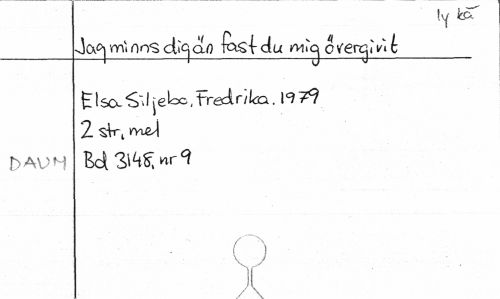 ly kä
Jag minns dig än fast du mig övergivit
Elsa Siljebo, Fredrika. 1979
2 str, mel
DAUM Bd 3148, nr 9